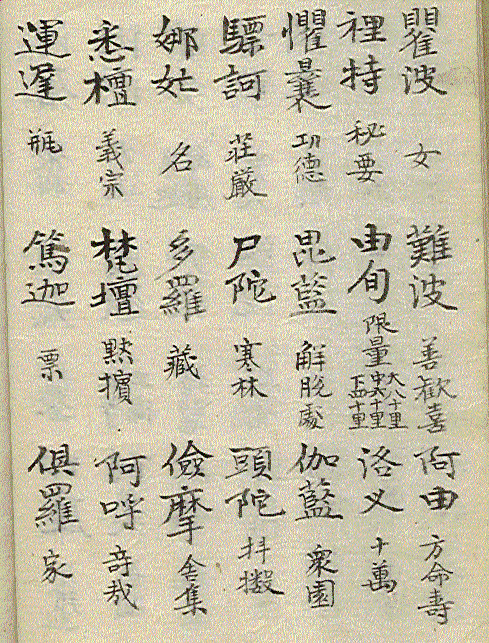 瞿波 女 難波 善歓喜 阿由 方命壽
裡持 秘要 由旬 限量 大八十里 中六十里 下四十里 洛叉 十萬
懼曩 功德 毘藍 解脱處 伽藍 衆園
驃訶 莊厳 尸陀 寒林 頭陀 抖擻
娜 名 多羅 藏 儉摩 舍集
悉檀 義宗 梵壇 黙擯 阿呼 奇哉
運遅 瓶 篤迦 票 倶羅 家